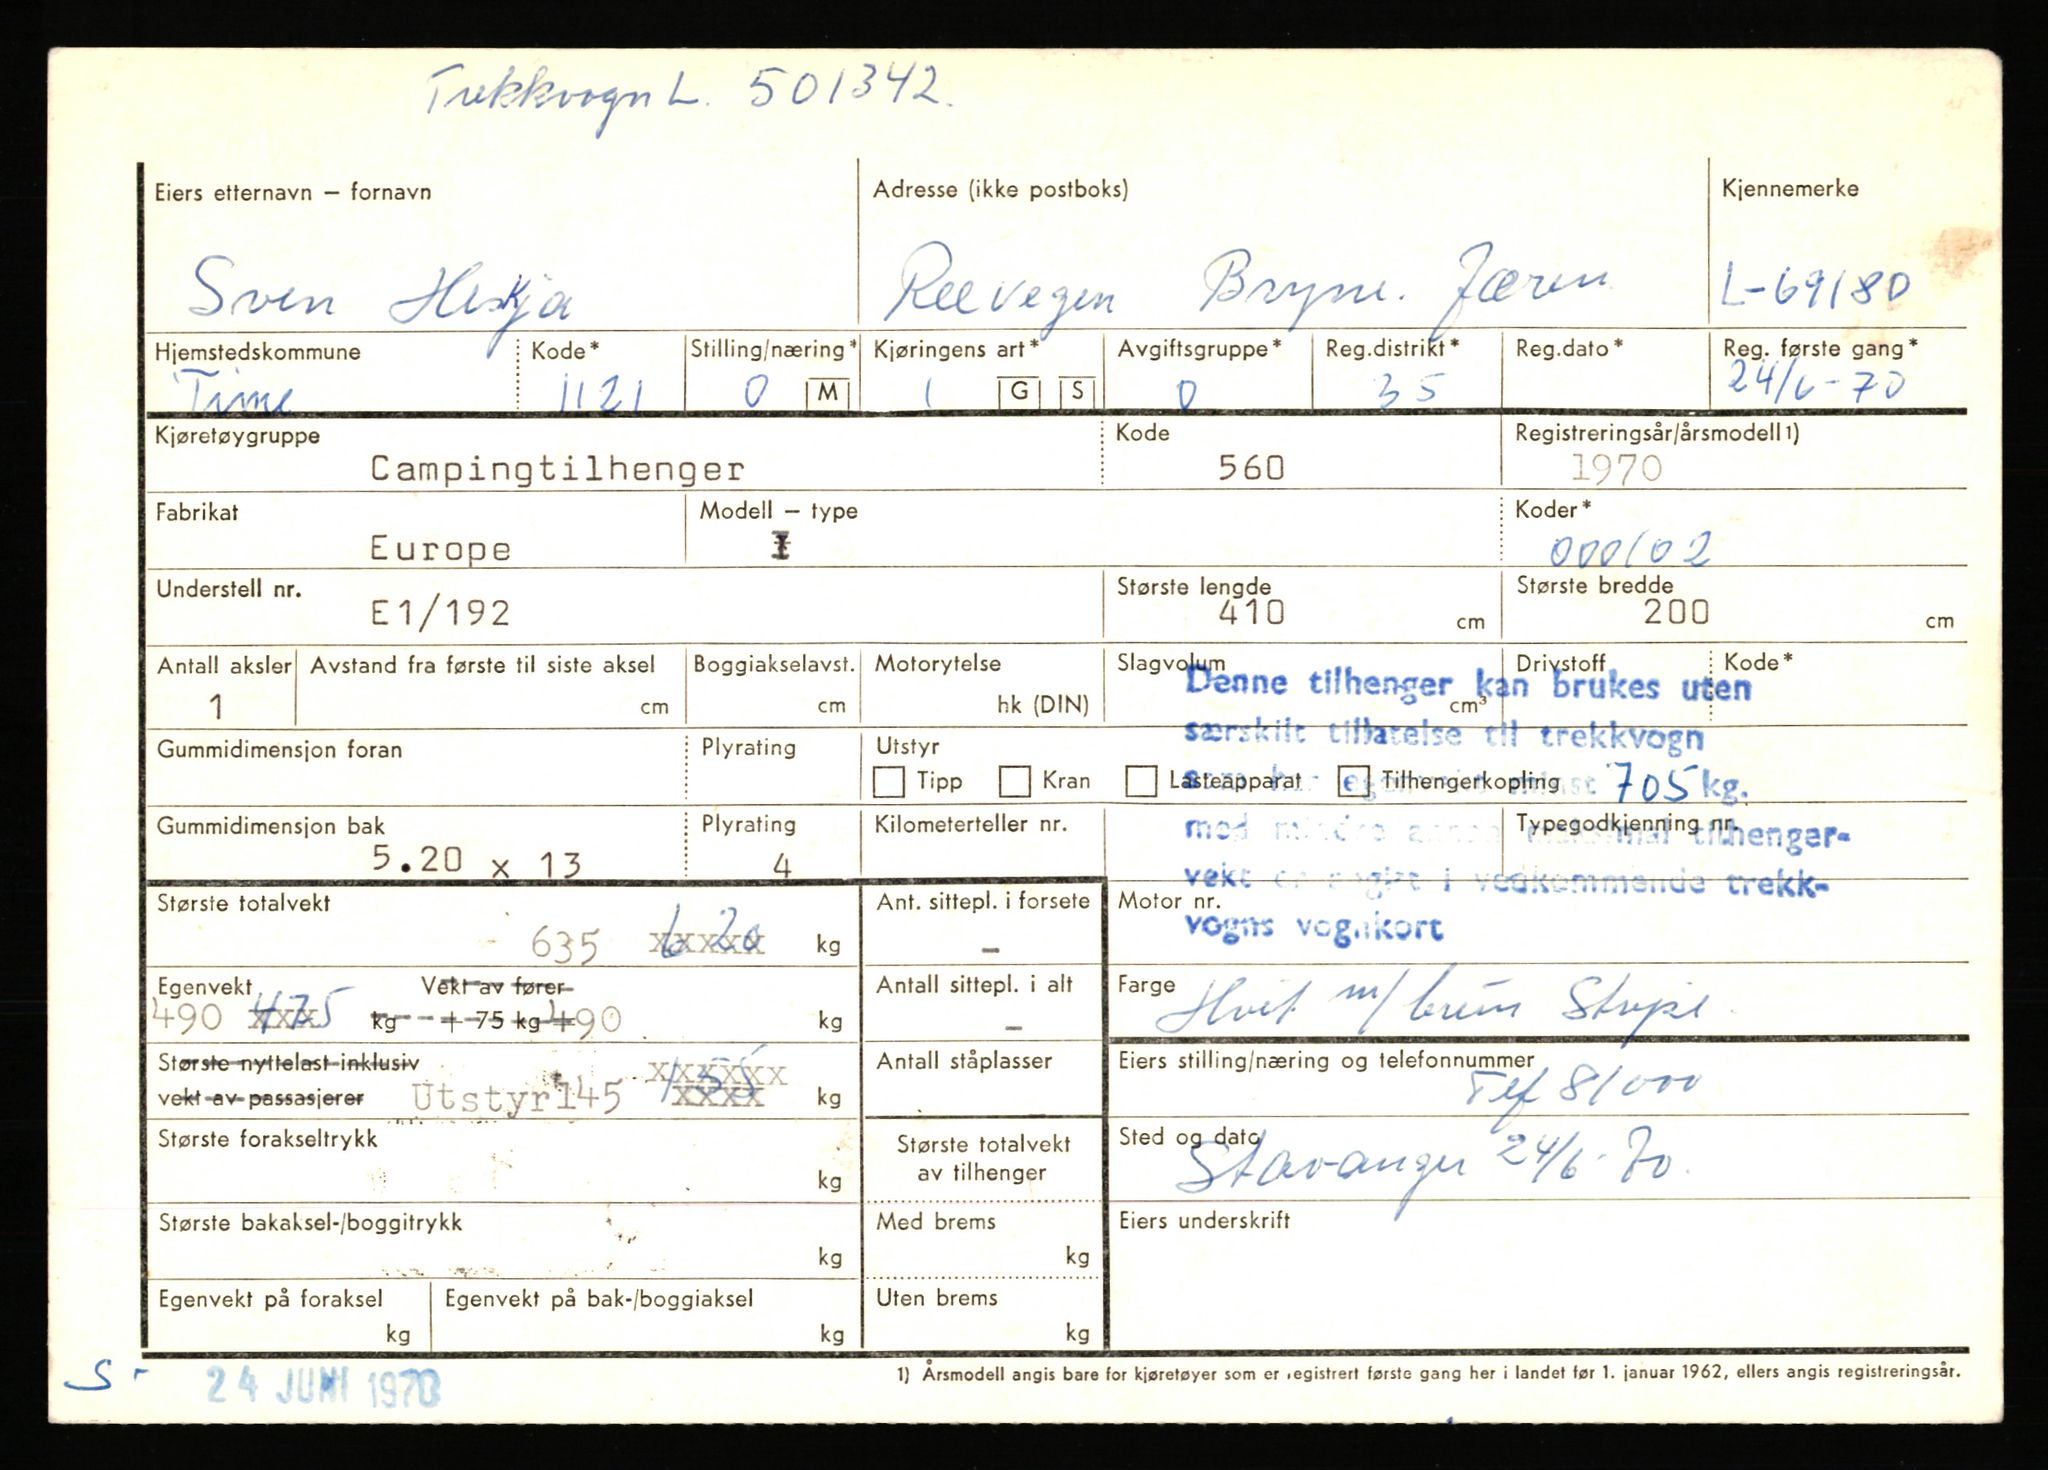 Trekkvogn L. 501342.
Eiers etternavn – fornavn
Adresse (ikke postboks)
Kjennemerke
Sven Heskja
Reevegen Bryne. Jæren
L-69180
Hjemstedskommune Kode* Stilling/næring* Kjøringens art* Avgiftsgruppe* Reg.distrikt* Reg.dato* Reg. første gang*
Time 1121 0 M 1 G S 0 35 24/6-70
Kjøretøygruppe Kode Registreringsår/årsmodell 1)
Campingtilhenger 560 1970
Fabrikat Modell – type Koder*
Europe I 000102
Understell nr. Største lengde Største bredde
E1/192 410 cm 200 cm
Antall aksler Avstand fra første til siste aksel Boggiakselavst. Motorytelse Slagvolum Drivstoff Kode*
1 cm cm hk (DIN) cm³
Denne tilhenger kan brukes uten
særskilt tillatelse til trekkvogn
som har egenvekt minst 705 kg.
med mindre annen maksimal tilhenger-
vekt er angitt i vedkommende trekk-
vogns vognkort
Gummidimensjon foran Plyrating Utstyr
Tipp Kran Lasteapparat Tilhengerkopling
Gummidimensjon bak Plyrating Kilometerteller nr. Typegodkjenning nr.
5.20 x 13 4
Største totalvekt Ant. sittepl. i forsete Motor nr.
635 620 kg –
Egenvekt Vekt av fører Antall sittepl. i alt Farge
490 475 kg + 75 kg 490 kg – Hvit m/ brun Stripe
Største nyttelast inklusiv Antall ståplasser Eiers stilling/næring og telefonnummer
vekt av passasjerer Utstyr 145 155 kg Tlf 81000
Største forakseltrykk Største totalvekt Sted og dato
kg av tilhenger Stavanger 24/6-70.
Største bakaksel-/boggitrykk Med brems Eiers underskrift
kg kg
Egenvekt på foraksel Egenvekt på bak-/boggiaksel Uten brems
kg kg kg
S -
24 JUNI 1970
1) Årsmodell angis bare for kjøretøyer som er registrert første gang her i landet før 1. januar 1962, ellers angis registreringsår.